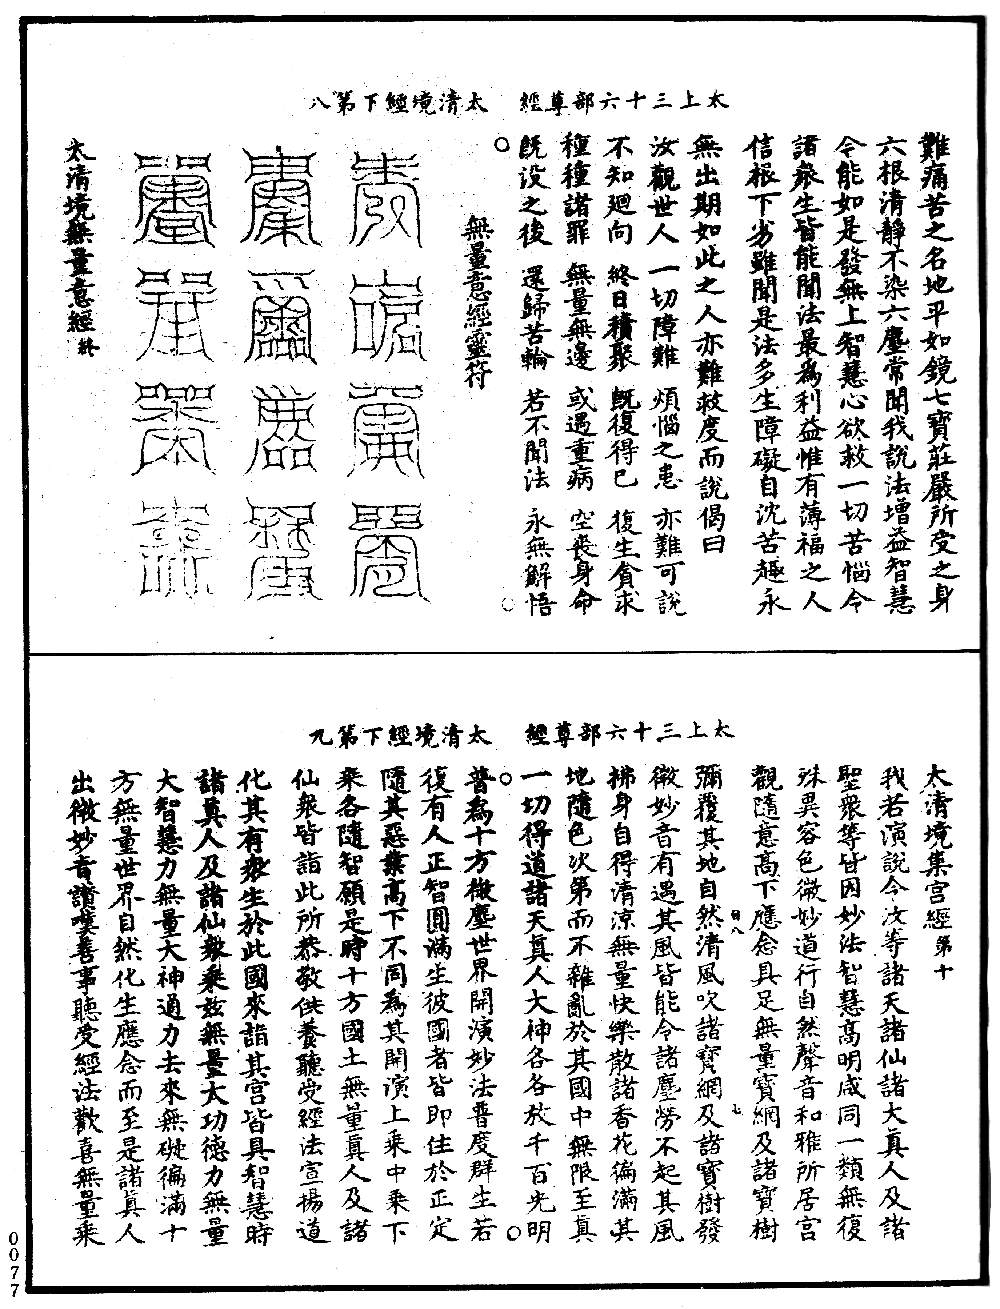 太上三十六部尊經　太清境經下第八
難痛苦之名地平如鏡七寶莊嚴所受之身
六根清靜不染六塵常聞我說法增益智慧
令能如是發無上智慧心欲救一切苦惱令
諸衆生皆能聞法最為利益惟有薄福之人
信根下劣雖聞是法多生障礙自沈苦趣永
無出期如此之人亦難救度而說偈曰
汝觀世人　一切障難　煩惱之患　亦難可說
不知廻向　終日積聚　既復得已　復生貪求
種種諸罪　無量無邊　或遇重病　空喪身命
既沒之後　還歸苦輪　若不聞法　永無解悟
無量意經靈符
太清境無量意經終
太上三十六部尊經　太清境經下第九
太清境集宮經第十
我若演說令汝等諸天諸仙諸大真人及諸
聖衆等皆因妙法智慧高明咸同一類無復
殊異容色微妙道行自然聲音和雅所居宮
觀隨意高下應念具足無量寶網及諸寶樹
彌覆其地自然清風吹諸寶網及諸寶樹發
微妙音有遇其風皆能令諸塵勞不起其風
拂身自得清涼無量快樂散諸香花徧滿其
地隨色次第而不雜亂於其國中無限至真
一切得道諸天真人大神各各放千百光明
普為十方微塵世界開演妙法普度群生若
復有人正智圓滿生彼國者皆即住於正定
隨其惡業高下不同為其開演上乘中乘下
乘各隨智願是時十方國土無量真人及諸
仙衆皆詣此所恭敬供養聽受經法宣揚道
化其有衆生於此國來詣其宮皆具智慧時
諸真人及諸仙衆乘兹無量大功德力無量
大智慧力無量大神通力去來無礙徧滿十
方無量世界自然化生應念而至是諸真人
出微妙音讚嘆善事聽受經法歡喜無量乘
0077